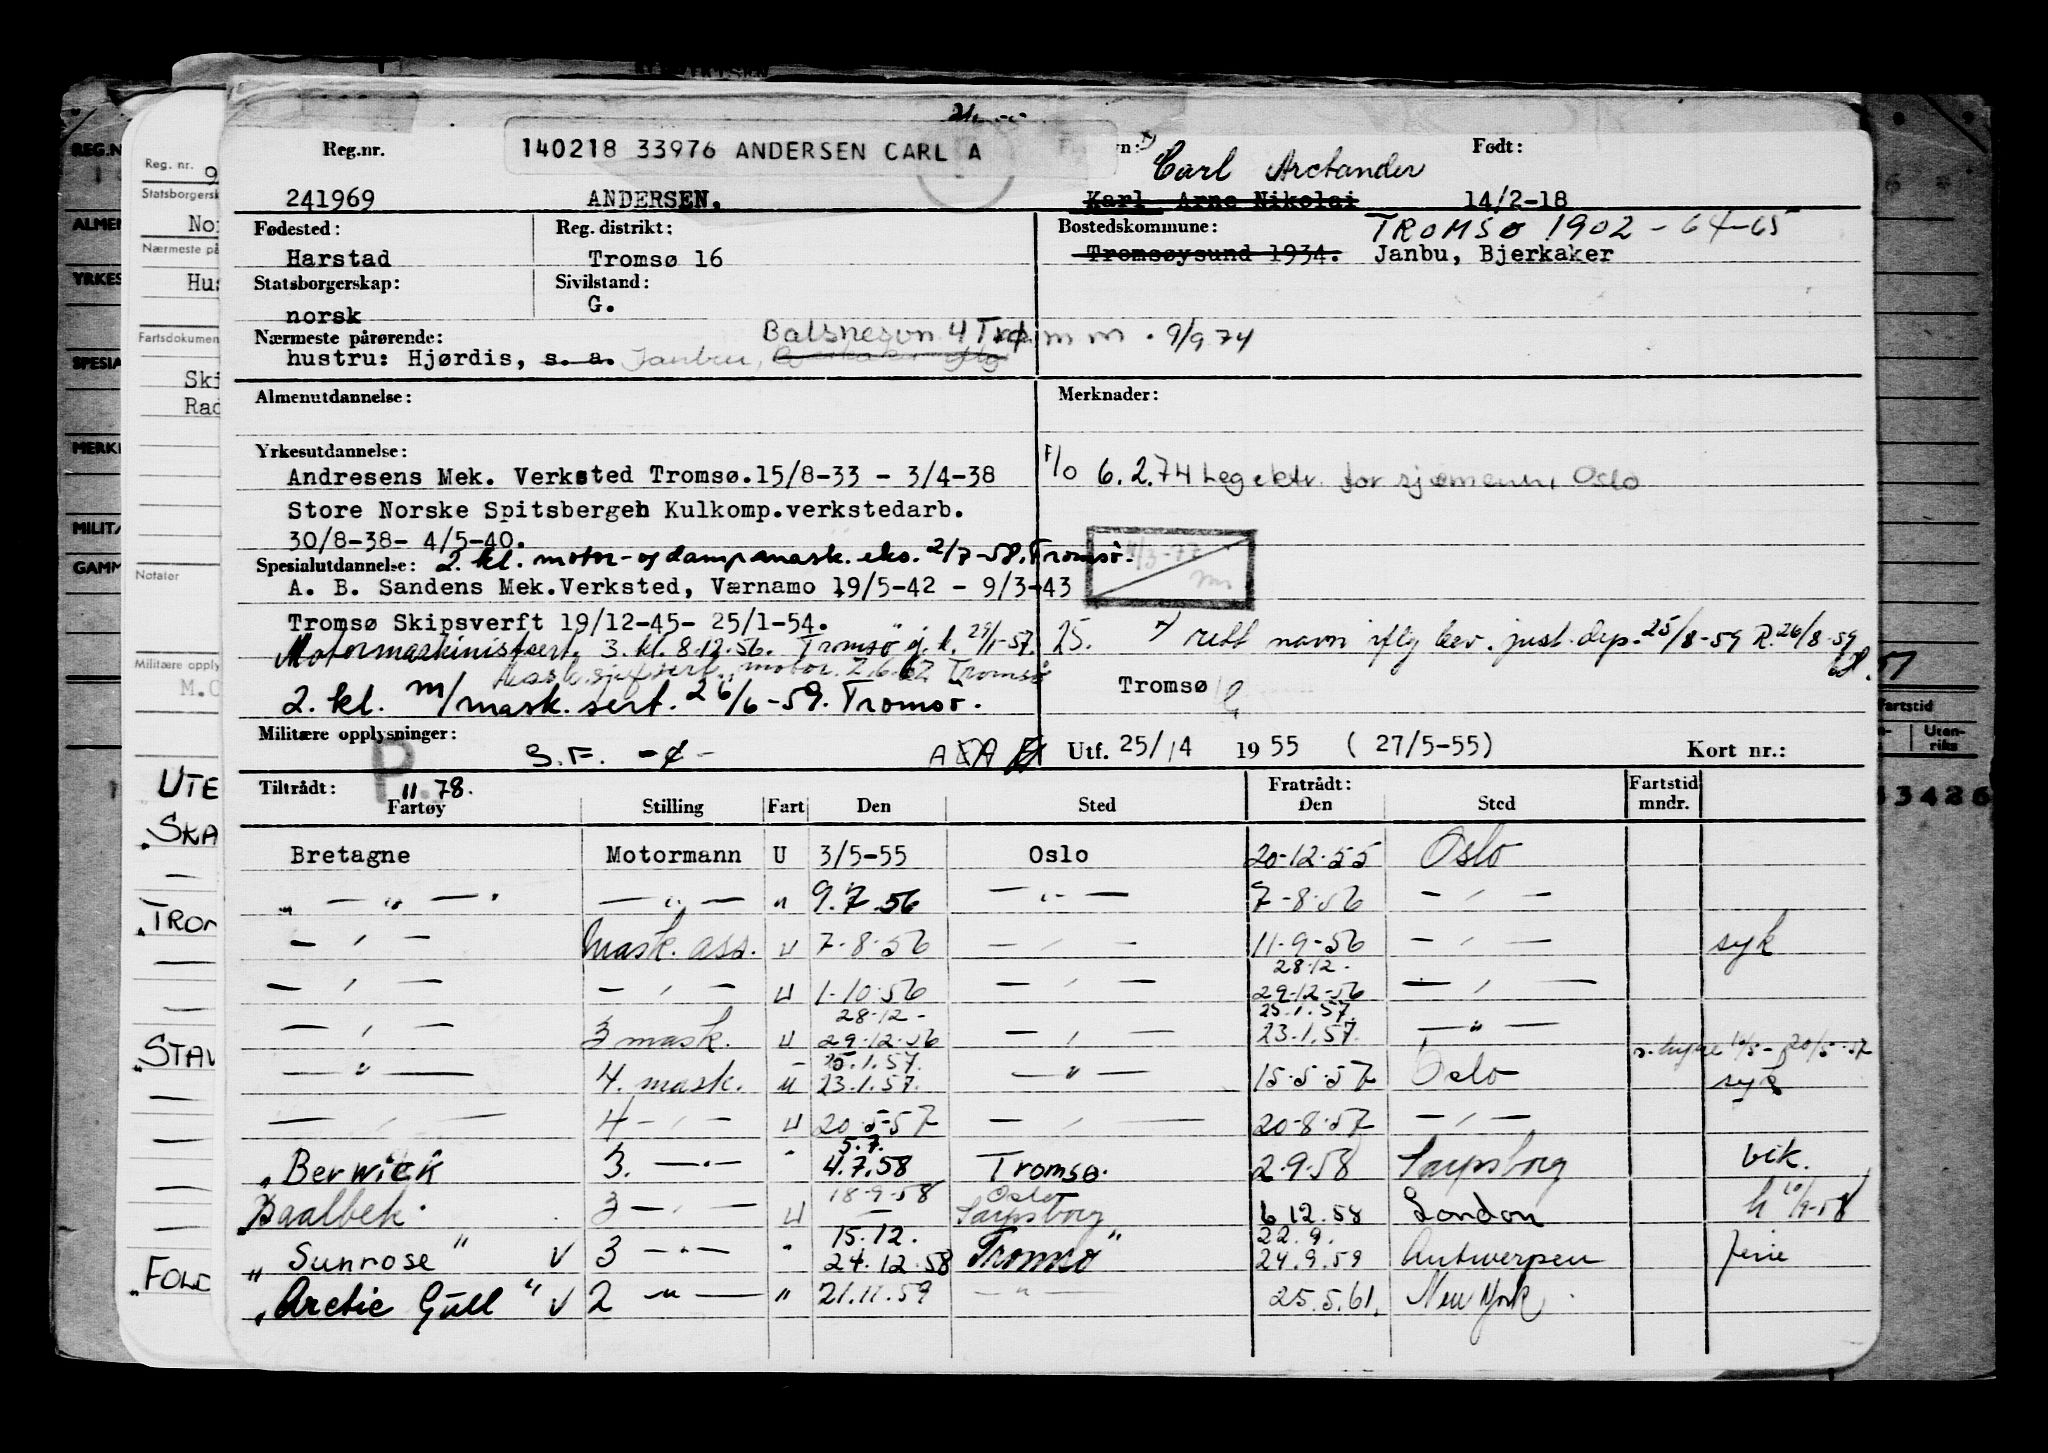 Reg.nr.
140218 33976 ANDERSEN CARL A
Født:
Carl Arctander
241969 ANDERSEN, Karl Arne Nikolai 14/2-18
Fødested: Reg. distrikt: Bostedskommune: TROMSØ 1902 - 64-65
Harstad Tromsø 16 Tromsøysund 1934. Janbu, Bjerkaker
Statsborgerskap: Sivilstand:
norsk G.
Nærmeste pårørende: 9/9 74
hustru: Hjørdis, s. a. Janbu,
Almenutdannelse: Merknader:
Yrkesutdannelse:
Andresens Mek. Verksted Tromsø.15/8-33 - 3/4-38
6.2.74 Legektr. for sjømenn, Oslo
Store Norske Spitsbergen Kulkomp.verkstedarb.
30/8-38- 4/5-40.
Spesialutdannelse: 2. kl. motor- og dampmask. eks. 2/7-58. Tromsø.
A. B. Sandens Mek.Verksted, Værnamo 19/5-42 - 9/3-43
Tromsø Skipsverft 19/12-45- 25/1-54.
Motormaskinistsert. 3. kl. 8.12.56. Tromsø g. k. 29/1-57. 25.
rett navn iflg bev. just. dep. 25/8-59 R. 26/8-59
motor. 7.6.62 Tromsø
2. kl. m/mask. sert. 26/6-59. Tromsø.
Tromsø
Militære opplysninger: S.F. Utf. 25/4 1955 (27/5-55) Kort nr.:
P. 11.78.
Tiltrådt: Fratrådt: Fartstid mndr.
Fartøy Stilling Fart Den Sted Den Sted
Bretagne Motormann U 3/5-55 Oslo 20-12-55 Oslo
„ — „ — — „ — " 9.7.56 — „ — 7-8-56 — „ —
— „ — Mask. ass. U 7-8-56 — „ — 11-9-56 — „ — syk
28.12.
— „ — — „ — U 1-10-56 — „ — 29-12-56 — „ —
28.12 - 25.1.57.
— „ — 3 mask. U 29-12-56 — „ — 23.1.57. — „ —
25.1.57.
— „ — 4. mask. U 23.1.57. — „ — 15-5-57 Oslo syk
— „ — 4 — „ — U 20-5-57 — „ — 20-8-57 — „ —
5.7.
„Berwick" 3. — „ — " 4.7.58 Tromsø. 2-9-58 Sarpsborg vik.
18-9-58 Oslo
Baalbek. 3 — „ — U — Sarpsborg 6 12.58 London
15.12. 22.9.
„Sunrose" V 3 — „ — " 24.12.58 Tromsø" 24.9.59 Antwerpen ferie
„Arctic Gull" V 2 — „ — " 21.11.59 — „ — 25.5.61. New York
Reg. nr. 9
Statsborgersk
Nor
Nærmeste på
Hus
Fartsdokumen
Ski
Rad
Notater
Militære opply
M.C
UTE
„SKA
„TROM
„STAV
„FOLD
REG.N
ALMEN
YRKES
SPESIA
MERK
MILIT
GAMM
Fartstid
Uten-
riks
3426